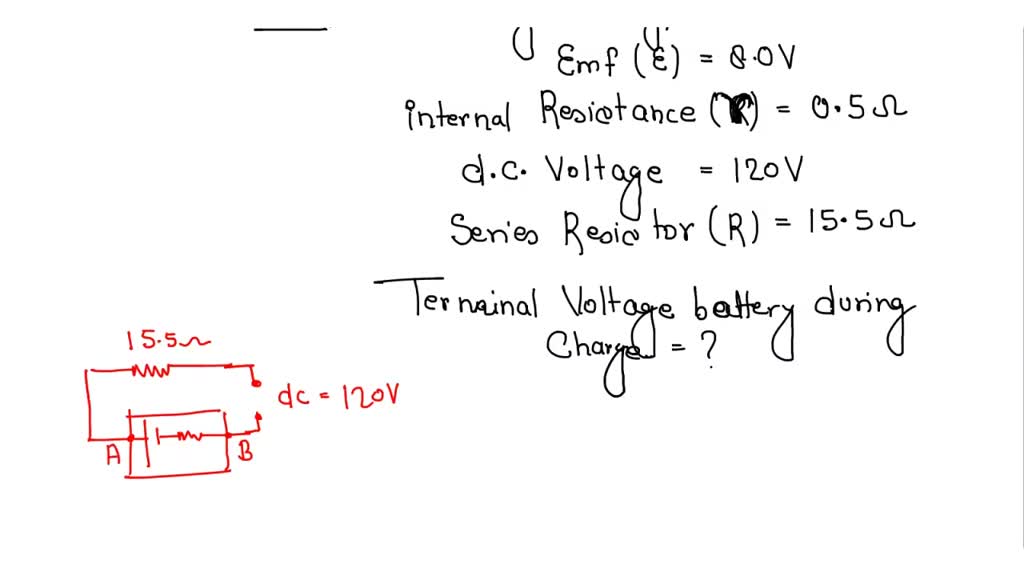 Emf (ε) = 8.0V
internal Resistance (r) = 0.5Ω
d.c. Voltage = 120V
Series Resistor (R) = 15.5Ω
Terminal Voltage battery during
Charge = ?
15.5Ω
dc = 120V
A B